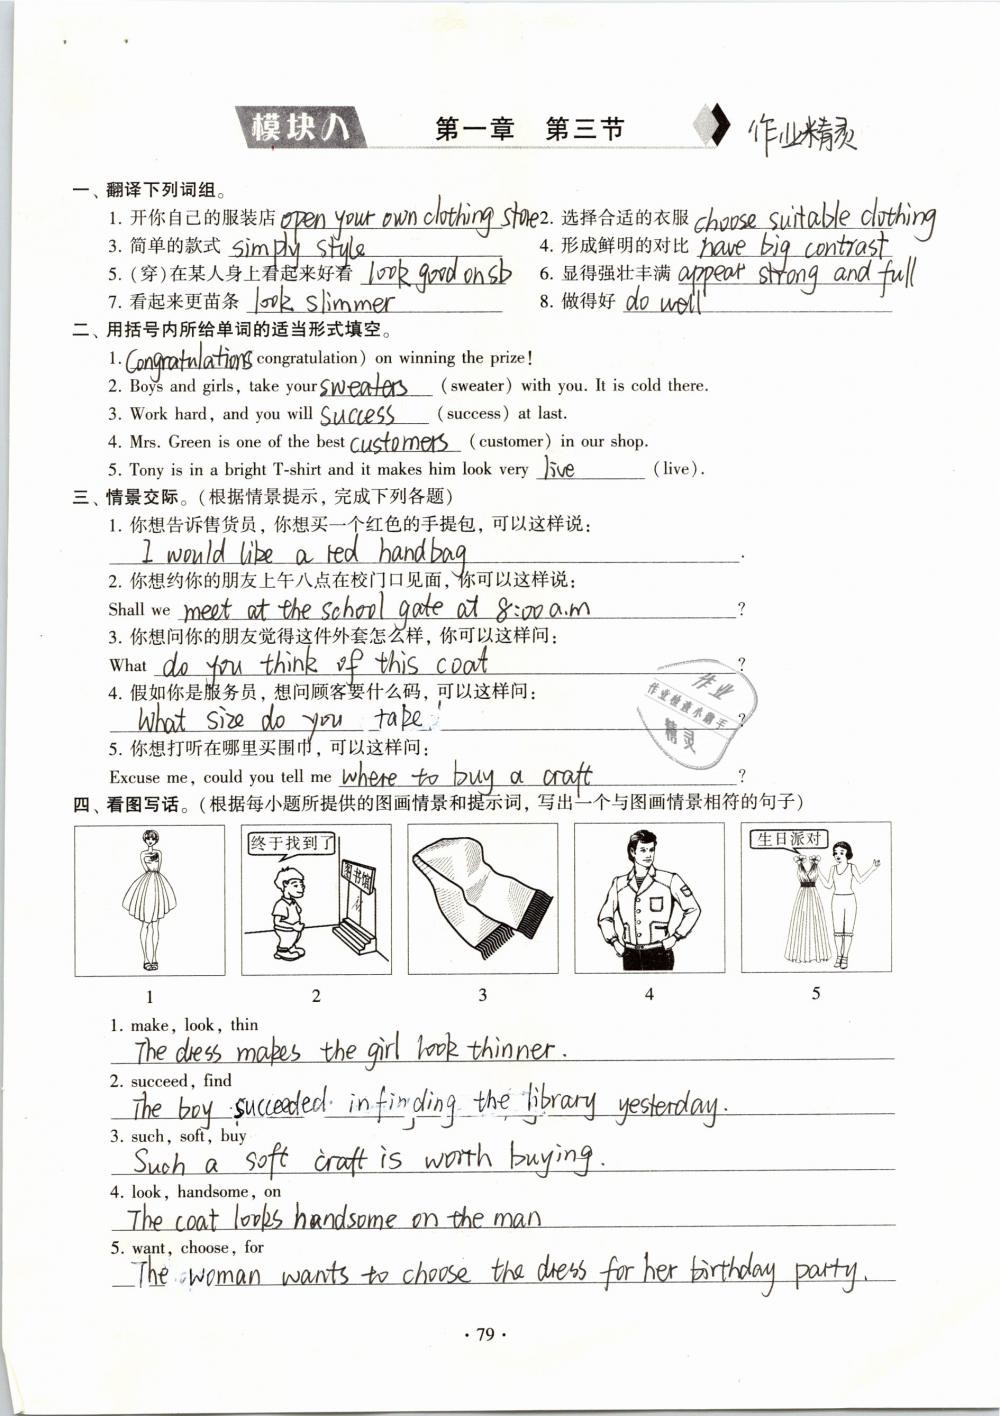 模块八 第一章 第三节 作业精灵
一、翻译下列词组。
1. 开你自己的服装店 open your own clothing store 2. 选择合适的衣服 choose suitable clothing
3. 简单的款式 simply style 4. 形成鲜明的对比 have big contrast
5. (穿)在某人身上看起来好看 look good on sb 6. 显得强壮丰满 appear strong and full
7. 看起来更苗条 look slimmer 8. 做得好 do well
二、用括号内所给单词的适当形式填空。
1. Congratulations congratulation) on winning the prize!
2. Boys and girls, take your sweaters (sweater) with you. It is cold there.
3. Work hard, and you will success (success) at last.
4. Mrs. Green is one of the best customers (customer) in our shop.
5. Tony is in a bright T-shirt and it makes him look very live (live).
三、情景交际。(根据情景提示，完成下列各题)
1. 你想告诉售货员，你想买一个红色的手提包，可以这样说:
I would like a red handbag .
2. 你想约你的朋友上午八点在校门口见面，你可以这样说:
Shall we meet at the school gate at 8:00 a.m ?
3. 你想问你的朋友觉得这件外套怎么样，你可以这样问:
What do you think of this coat ?
4. 假如你是服务员，想问顾客要什么码，可以这样问:
What size do you take ?
5. 你想打听在哪里买围巾，可以这样问:
Excuse me, could you tell me where to buy a craft ?
作业
作业检查小助手
精灵
四、看图写话。(根据每小题所提供的图画情景和提示词，写出一个与图画情景相符的句子)
终于找到了
图书馆
生日派对
1 2 3 4 5
1. make, look, thin
The dress makes the girl look thinner.
2. succeed, find
The boy succeeded in finding the library yesterday.
3. such, soft, buy
Such a soft craft is worth buying.
4. look, handsome, on
The coat looks handsome on the man
5. want, choose, for
The woman wants to choose the dress for her birthday party.
· 79 ·